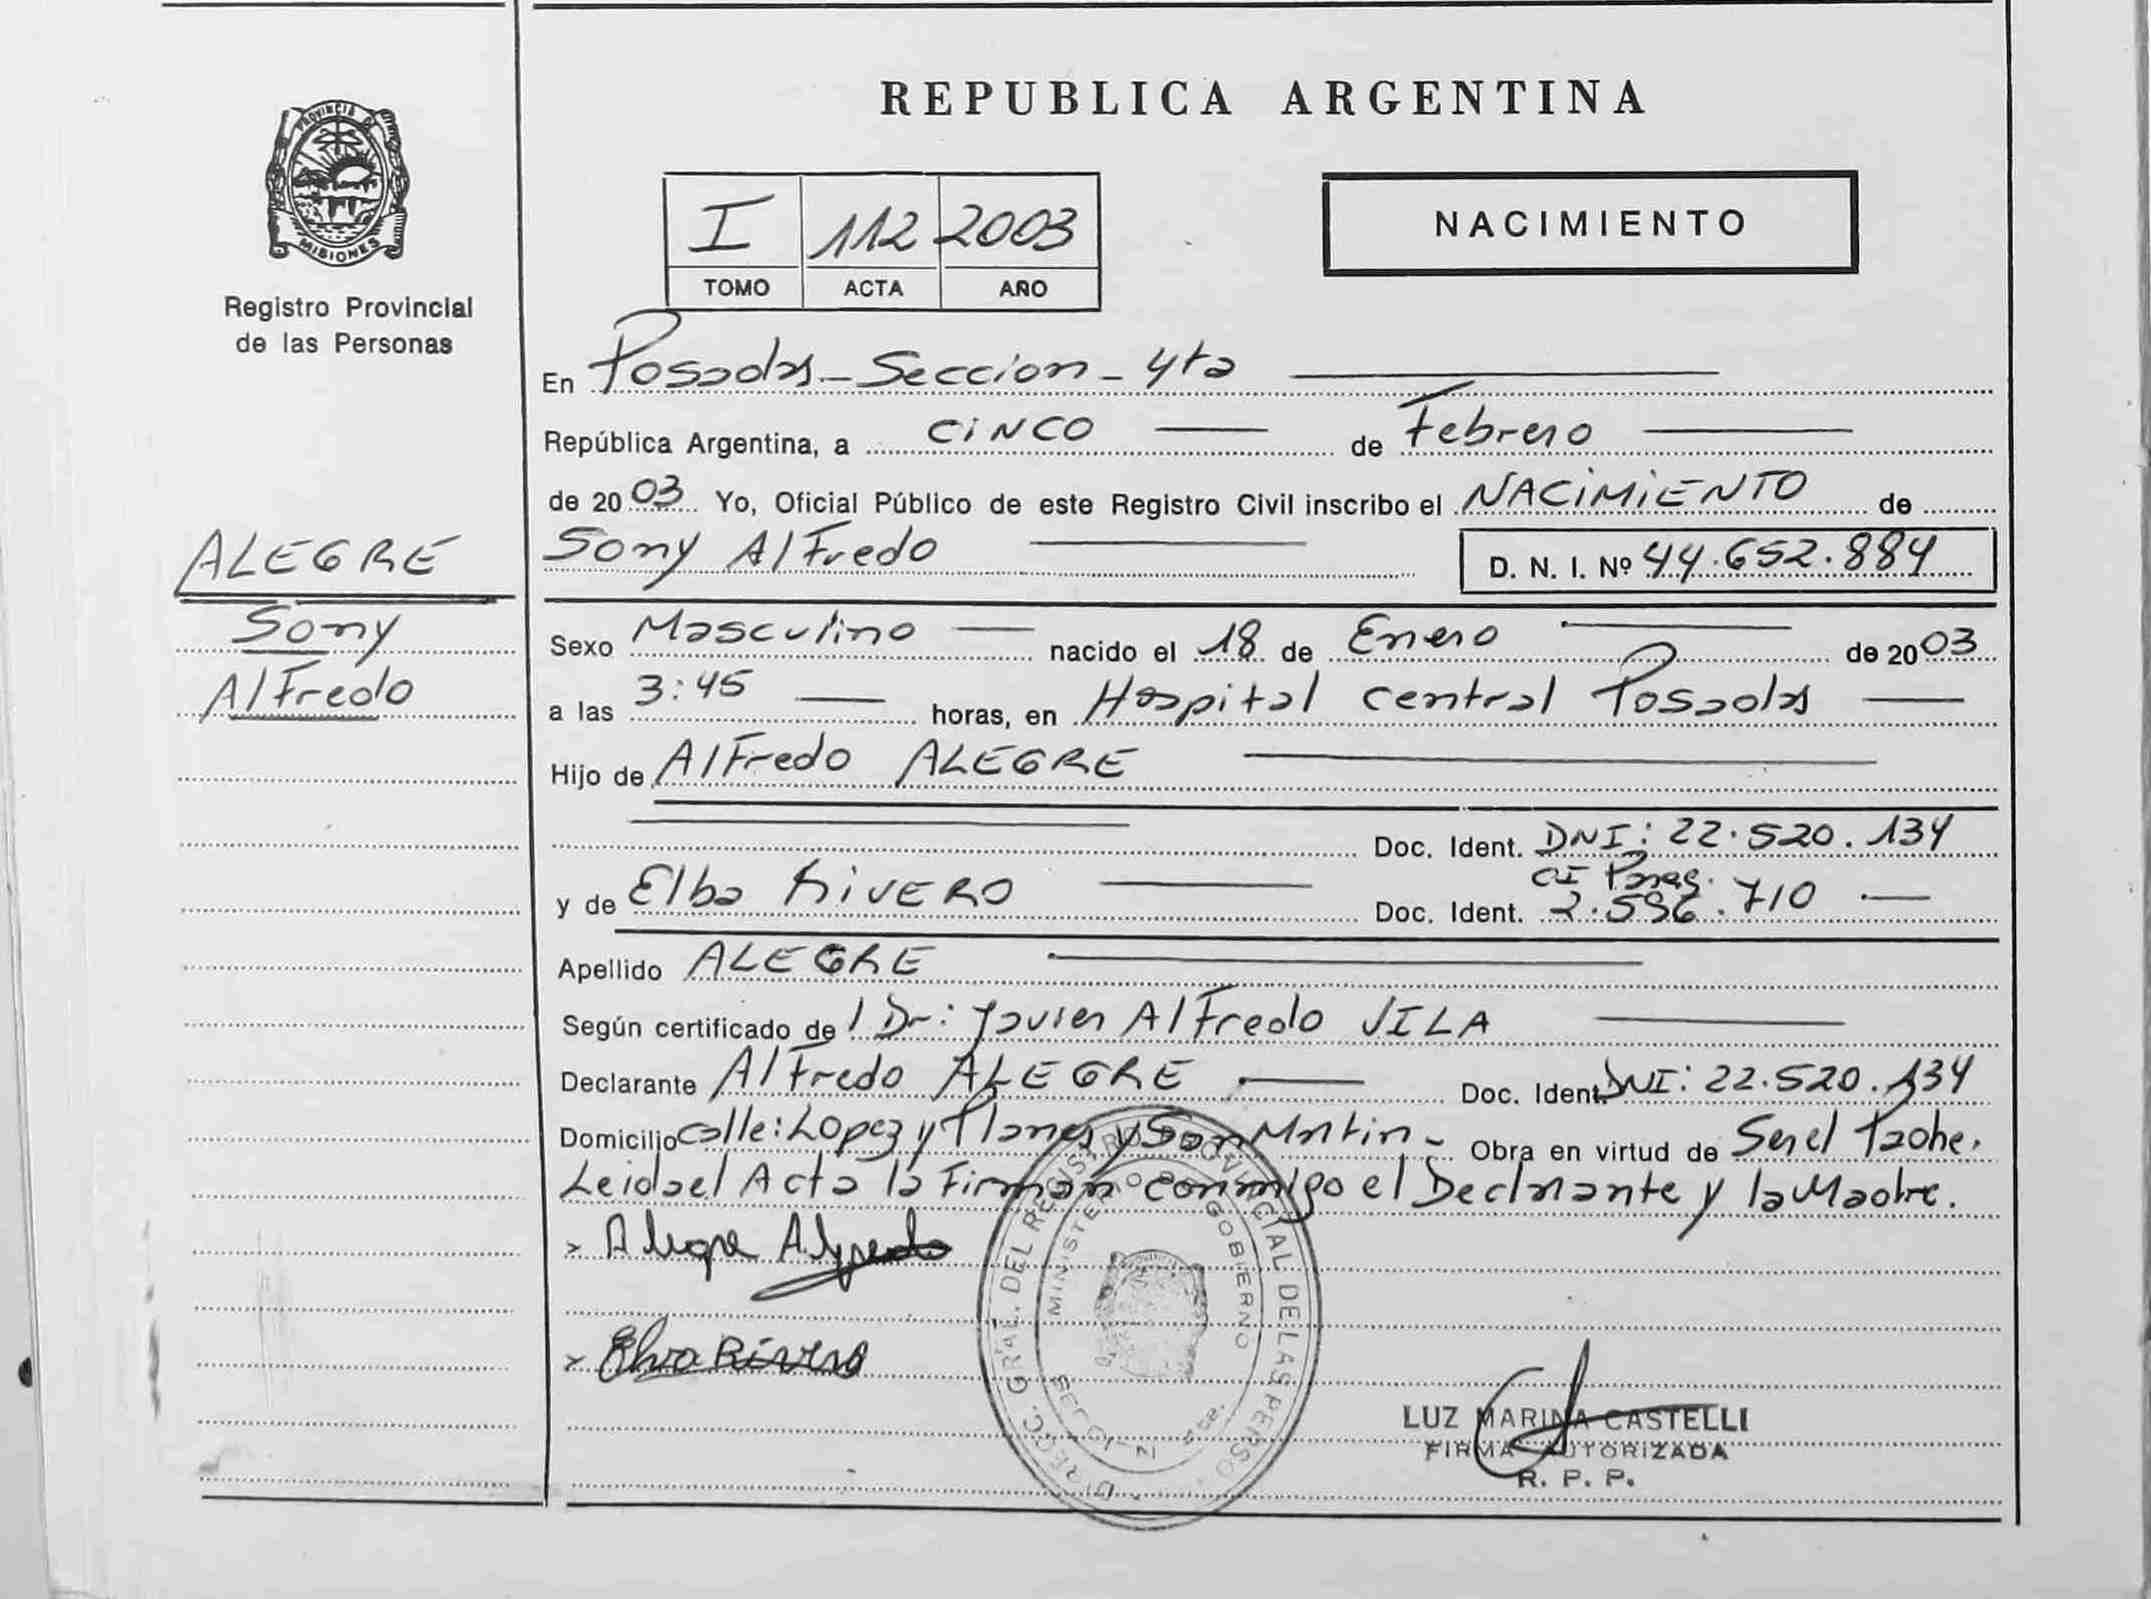 PROVINCIA DE
MISIONES
Registro Provincial
de las Personas
ALEGRE
Sony
Alfredo
REPUBLICA ARGENTINA
I 112 2003
TOMO ACTA AÑO
NACIMIENTO
En Posadas - Seccion - 4ta
República Argentina, a CINCO de Febrero
de 2003 Yo, Oficial Público de este Registro Civil inscribo el NACIMIENTO de
Sony Alfredo D. N. I. Nº 44.652.884
Sexo Masculino nacido el 18 de Enero de 2003
a las 3:45 horas, en Hospital central Posadas
Hijo de Alfredo ALEGRE
Doc. Ident. DNI: 22.520.134
CI Parag.
y de Elba RIVERO Doc. Ident. 2.596.710
Apellido ALEGRE
Según certificado de / Dr: Javier Alfredo VILA
Declarante Alfredo ALEGRE Doc. Ident. DNI: 22.520.134
Domicilio calle: Lopez y Planes y San Martin - Obra en virtud de Ser el Padre.
Leida el Acta la Firman conmigo el Declarante y la Madre.
Alegre Alfredo
Elva Rivero
DIRECC. GRAL. DEL REGISTRO PROVINCIAL DE LAS PERSO
MINISTERIO DE GOBIERNO
LUZ MARINA CASTELLI
FIRMA AUTORIZADA
R. P. P.